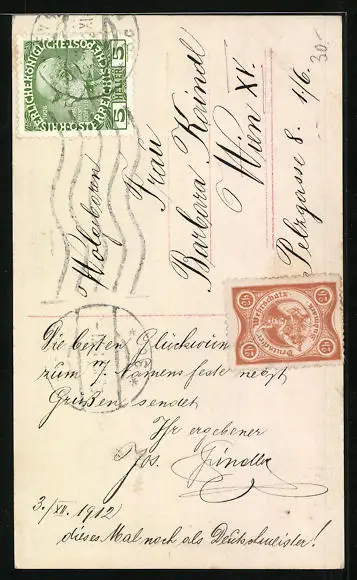 KAISERLICHE KÖNIGLICHE ÖSTERREICHISCHE POST
5 HELLER 5
30.-
Wolgeboren
Frau
Barbara Kaindl
Wien XV.
Pelzgasse 8. 1/6.
Deutscher Wehrschatz
Die besten Glückwün
zum Namensfeste nebst
Grüßen sendet
Ihr ergebener
Jos. Findler
3./XII. 1912
dieses Mal noch als Deutschmeister!